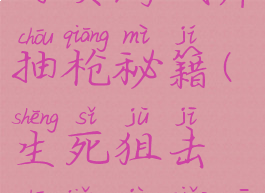 chōu qiāng mì jí
抽枪秘籍(
shēng sǐ jū jī
生死狙击